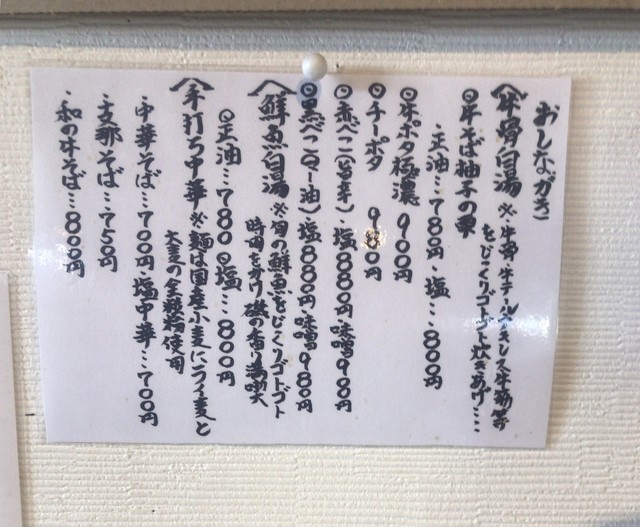 おしながき
牛骨白湯 ※牛骨・牛テール・牛すじ
をじっくりゴトゴト炊きあげ・・・・
◎牛そば柚子の
・正油・・・780円・塩・・・800円
◎牛ポタ極濃 900円
◎チーポタ 980円
◎赤べこ(旨辛) 塩880円・味噌900円
◎黒べこ(マー油) 塩880円・味噌980円
鮮魚白湯 ※旬の鮮魚をじっくりゴトゴト
時間をかけ磯の香り満喫
◎正油・・・780円 ◎塩・・・800円
手打ち中華 ※麺は国産小麦にライ麦と
大麦の全粒粉使用
・中華そば・・・700円・塩中華・・・700円
・支那そば・・・750円
・和の牛そば・・・800円